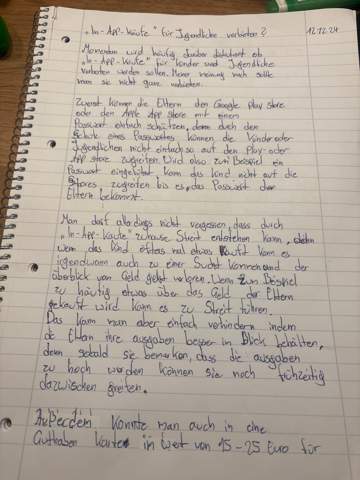 "In-App-Käufe" für Jugendliche verbieten?
12.12.24
Momentan wird häufig darüber diskutiert ob
"In-App-Käufe" für Kinder und Jugendliche
verboten werden sollen. Meiner meinung nach sollte
man sie nicht ganz verbieten.
Zuerst können die Eltern den Google Play store
oder den Apple App store mit einem
Passwort einfach schützen, denn durch den
Schutz eines Passwortes können die Kinder oder
Jugendlichen nicht einfach so auf den Play- oder
App store zugreifen. Wird also zum Beispiel ein
Passwort eingeführt, kann das kind nicht auf die
Stores zugreifen bis es das Passwort der
Eltern bekommt.
Man darf allerdings nicht vergessen, dass durch
"In-App-Käufe" zuhause Streit entstehen kann, denn
wenn das Kind öfters mal etwas kauft kann es
irgendwann auch zu einer Sucht kommen und der
überblick von Geld geht verloren. Wenn zum Beispiel
zu häufig etwas über das Geld der Eltern
gekauft wird kann es zu Streit führen.
Das kann man aber einfach verhindern indem
die Eltern ihre ausgaben besser im Blick behalten,
denn sobald sie bemerken, dass die ausgaben
zu hoch werden können sie noch frühzeitig
dazwischen greifen.
Außerdem könnte man auch in eine
Guthaben karte in Wert von 15-25 Euro für